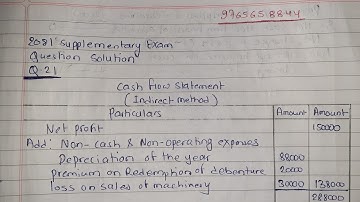 9765658844
2081 Supplementary Exam
Question Solution
Q.21
Cash flow statement
(Indirect method)
Particulars Amount Amount
Net profit 150000
Add: Non-cash & Non-operating expenses
Depreciation of the year 88000
Premium on Redemption of debenture 20000
loss on sales of machinery 30000 138000
288000